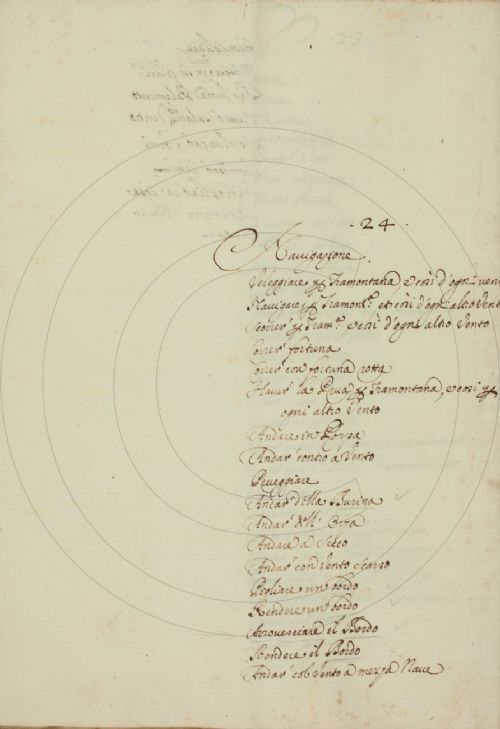 ·24·
Navigazione.
Veleggiare per Tramontana, e così d'ogni vent
Navigare per Tramont.ª et così d'ogni altro Vento
Scorrer per Tram.ª e così d'ogni altro Vento
Correr fortuna
Correr con fortuna rotta
Haver la Prua per Tramontana, e così per
ogni altro Vento
Andare in Poppa
Andar contro à Vento
Poueggiare
Andar della Burina
Andar dell' Orza
Andare à Secco
Andar con Vento Scarso
Pigliare un bordo
Rendere un bordo
Arrovesciare il Bordo
Rendere il Bordo
Andar col Vento a mezza Nave